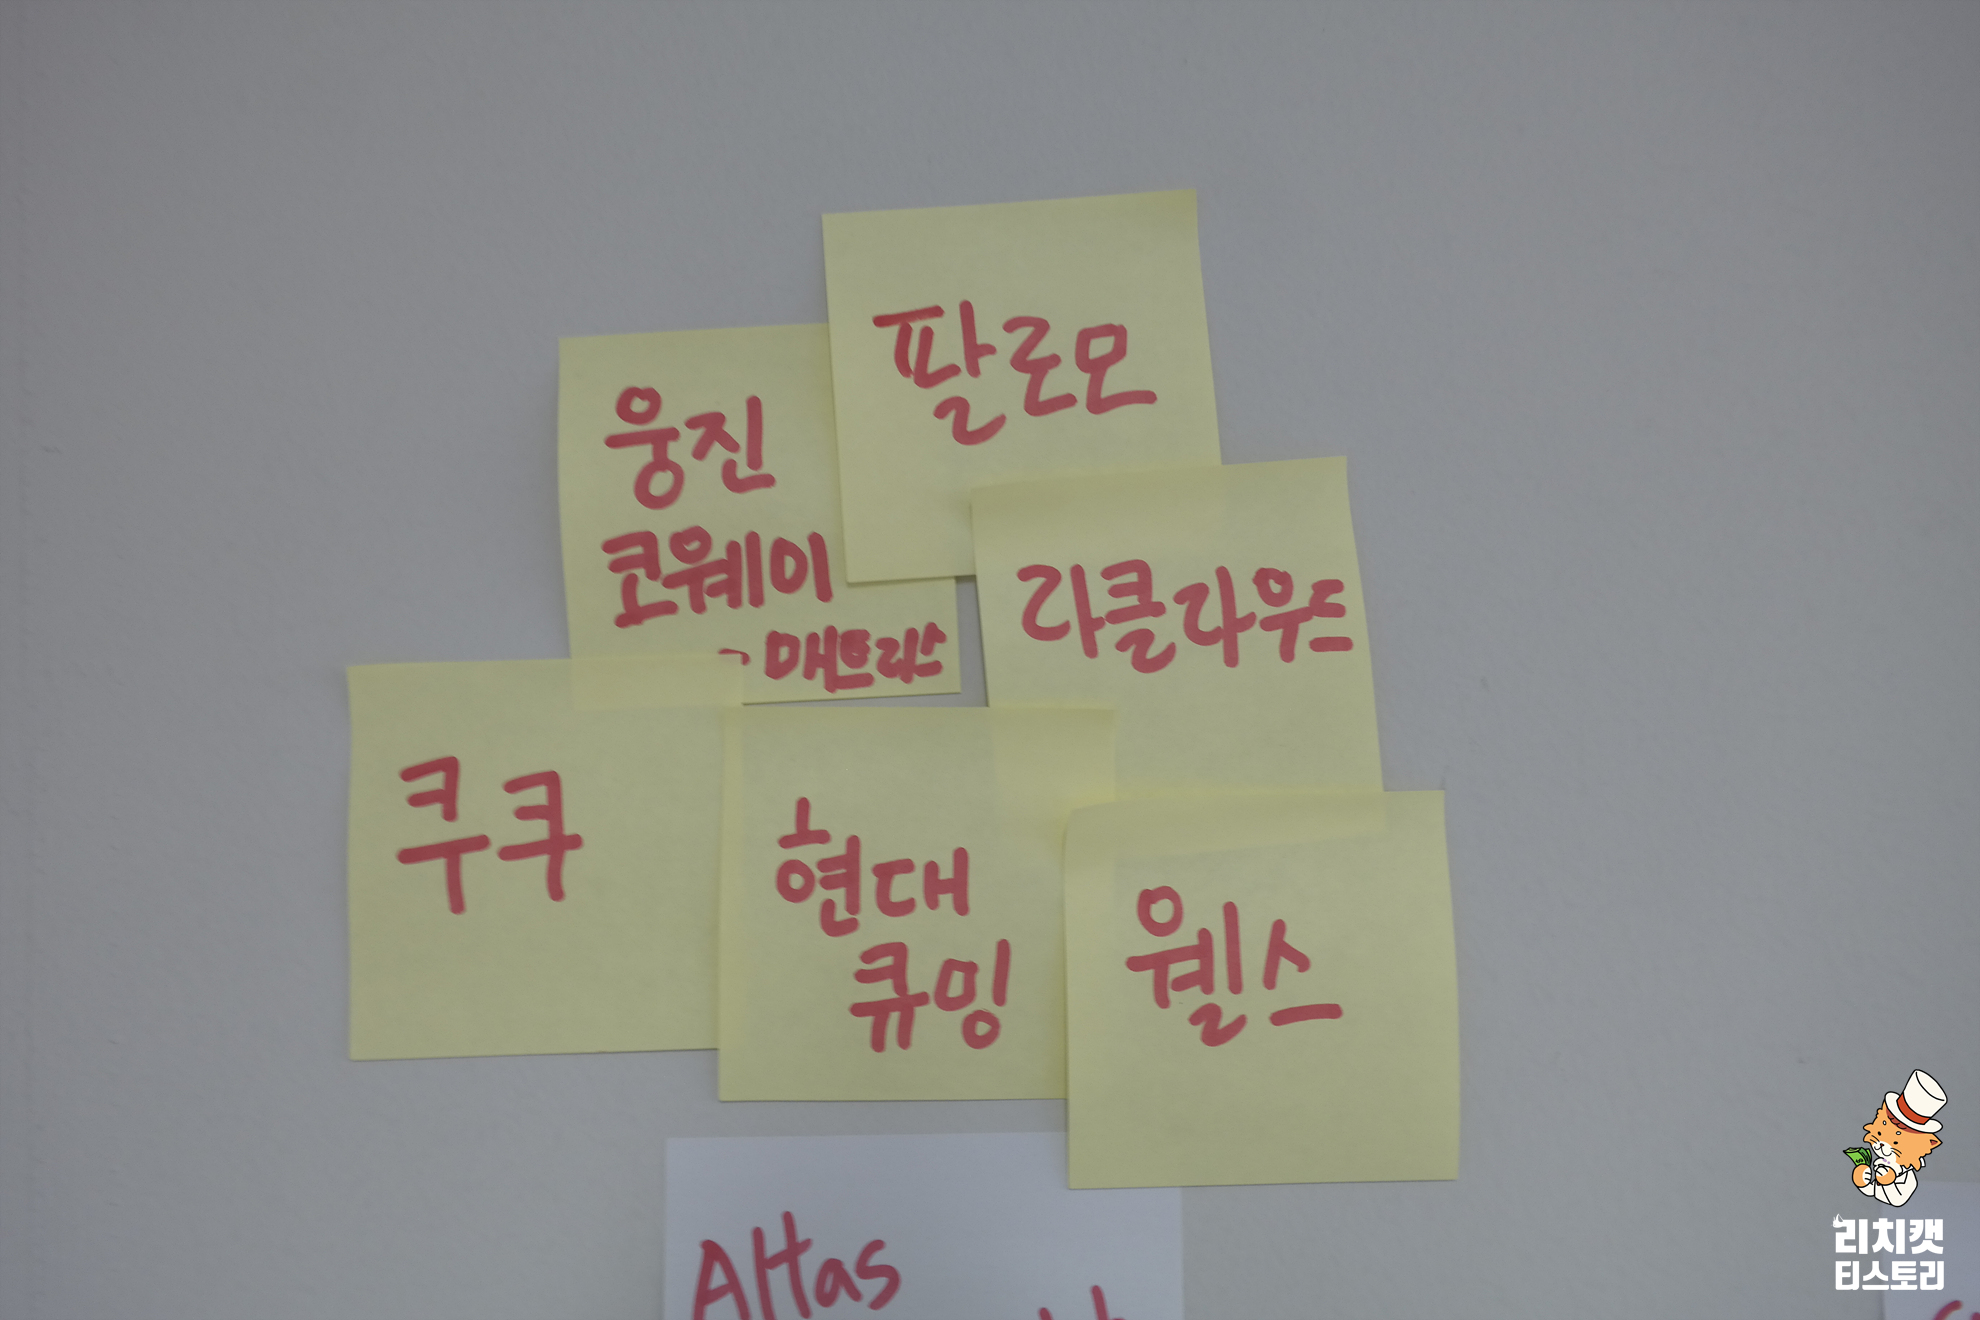 팔로모
웅진
코웨이
매트리스
라클라우드
쿠쿠
현대
큐밍
웰스
Altas
리치캣
티스토리